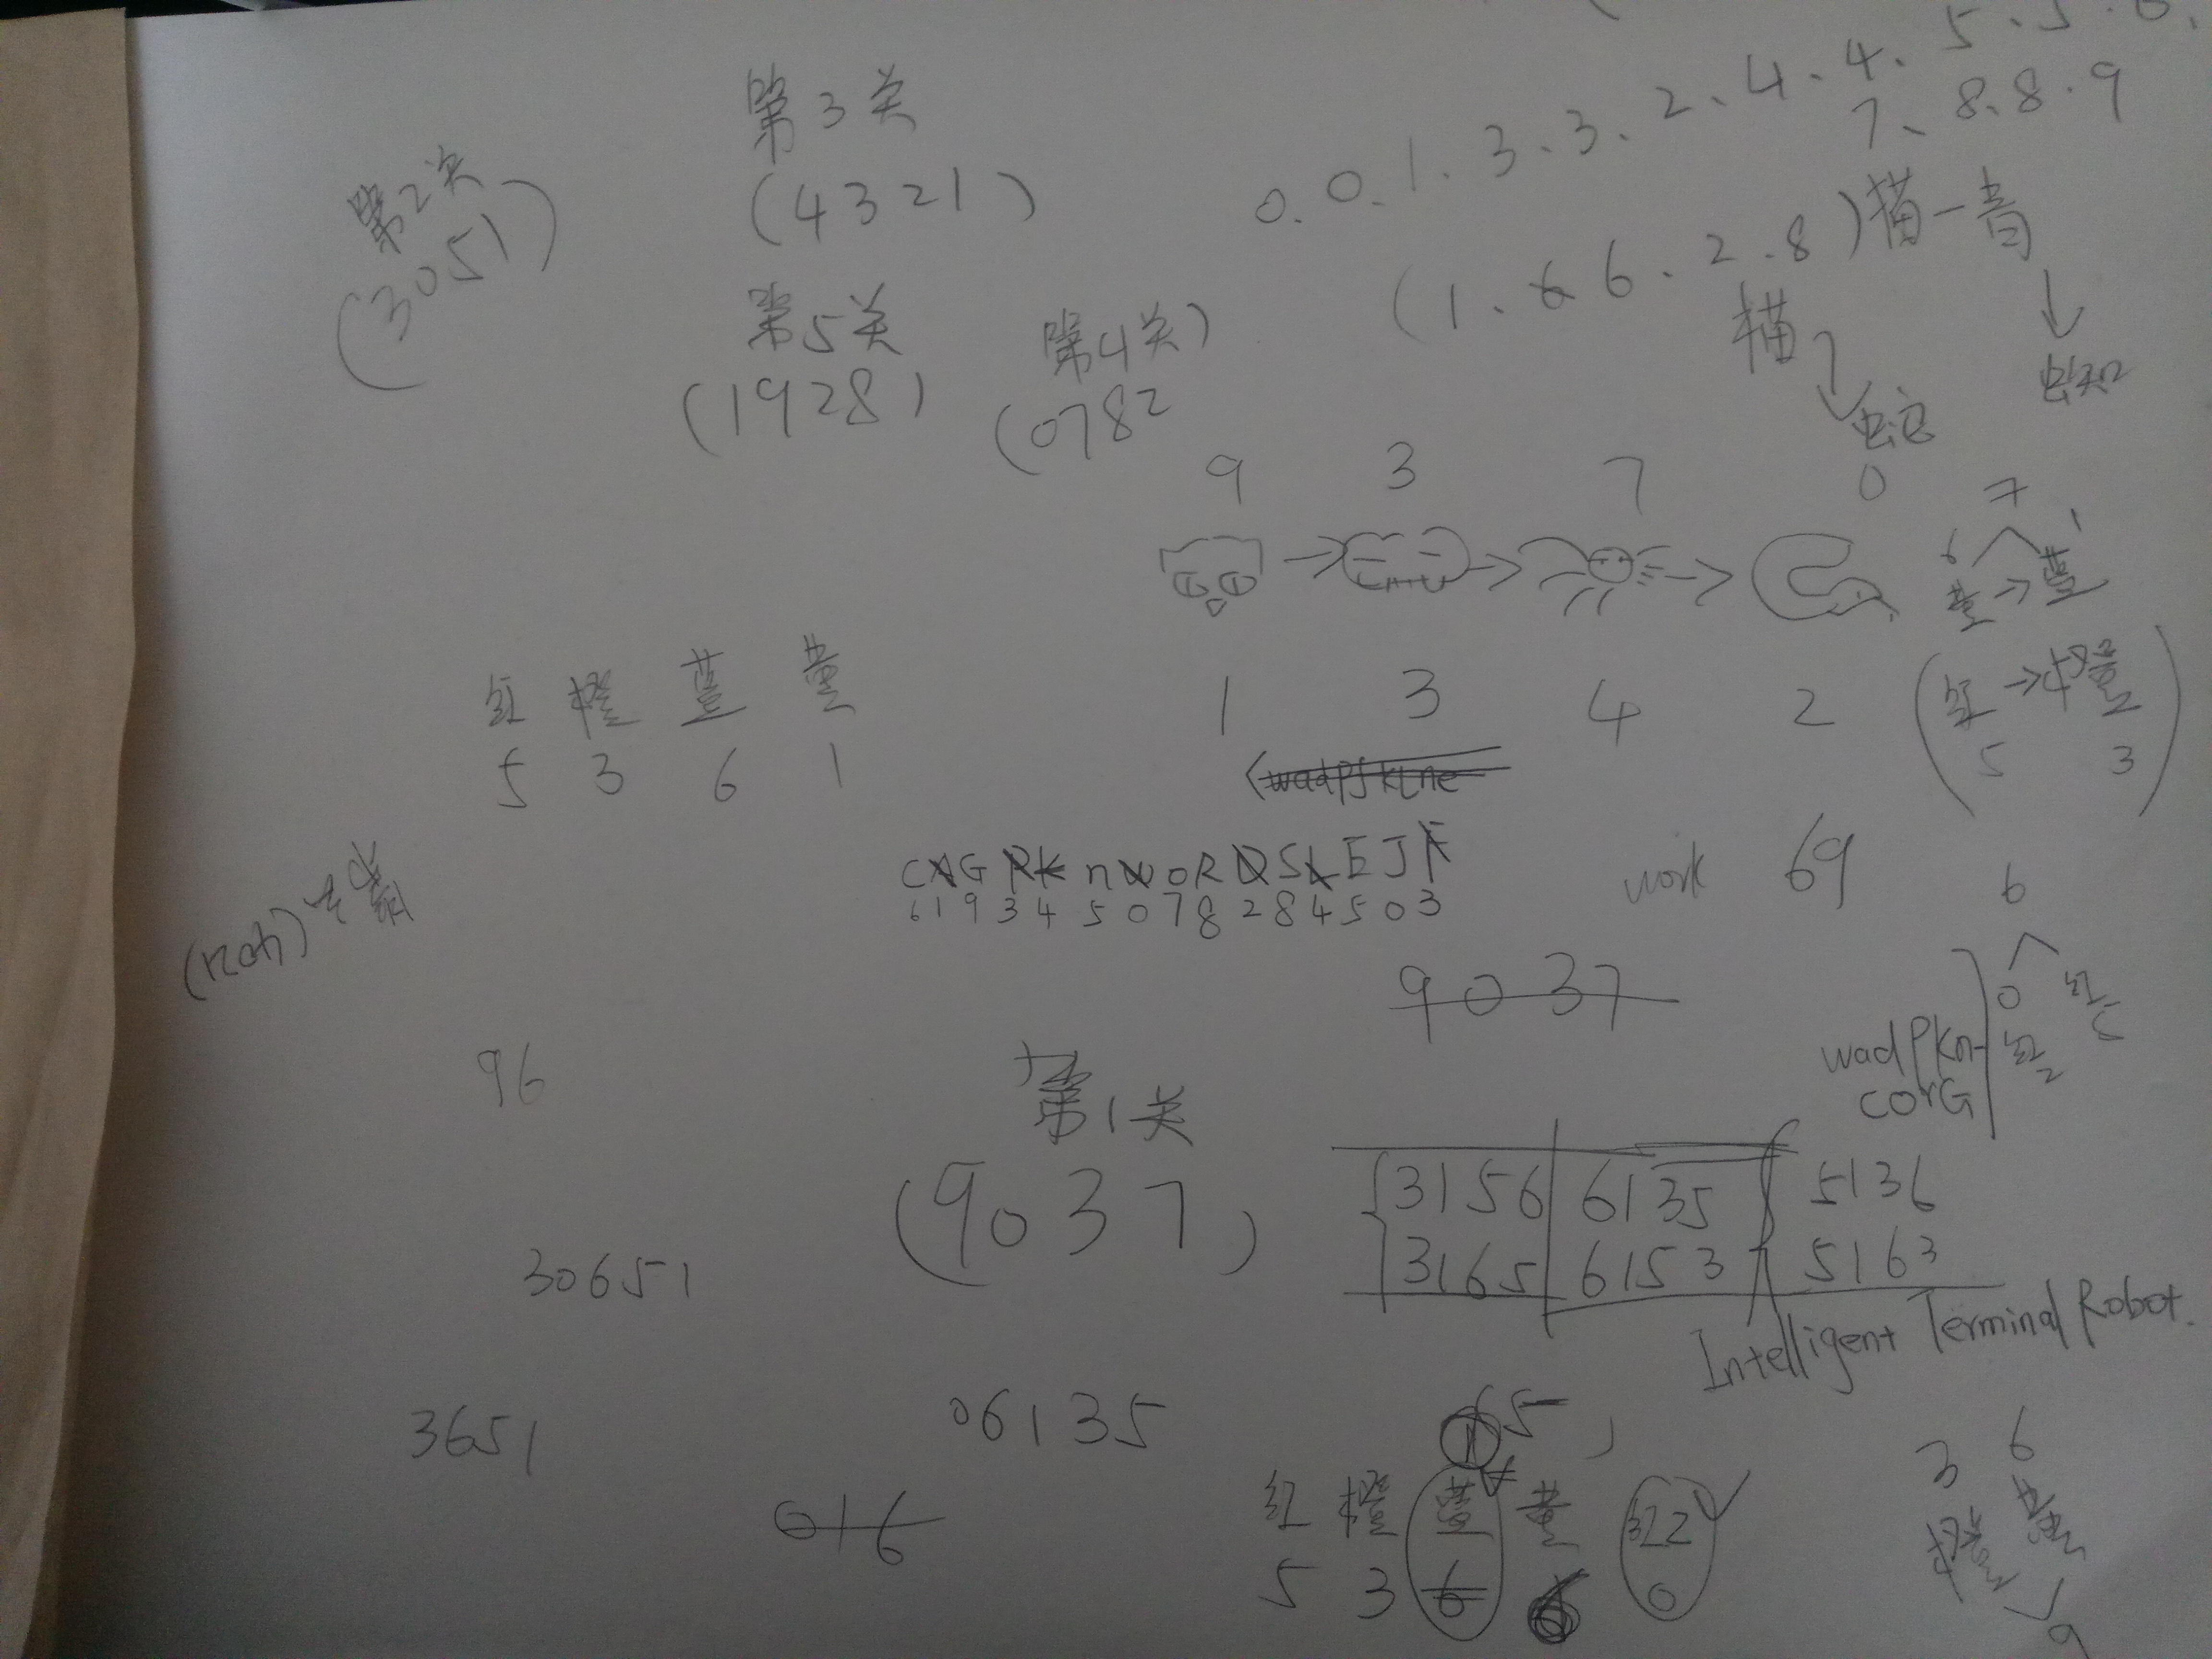 5、5、6、
0、0、1、3、3、2、4、4、
7、8、8、9
第3关
(4321)
第2关
(3051)
第5关
(1928)
第4关)
(0782
(1、6、2、8)猫一青
猫
蛇
蜘
9 3 7 0
7
6 1
黄→蓝
1 3 4 2
红 橙 蓝 黄
5 3 6 1
(红→橙2)
5 3
(wadPJKLne
CAGPKnWoRDSLEJF
619345078284503
work 69
6
0 红
红2
9037
wadPKn-
corG
96
第1关
(9037)
3156 6135 5136
3165 6153 5163
30651
Intelligent Terminal Robot.
3651
06135
65
016
红 橙 蓝 黄 红2
5 3 6 6 0
3 6
橙 黄
9